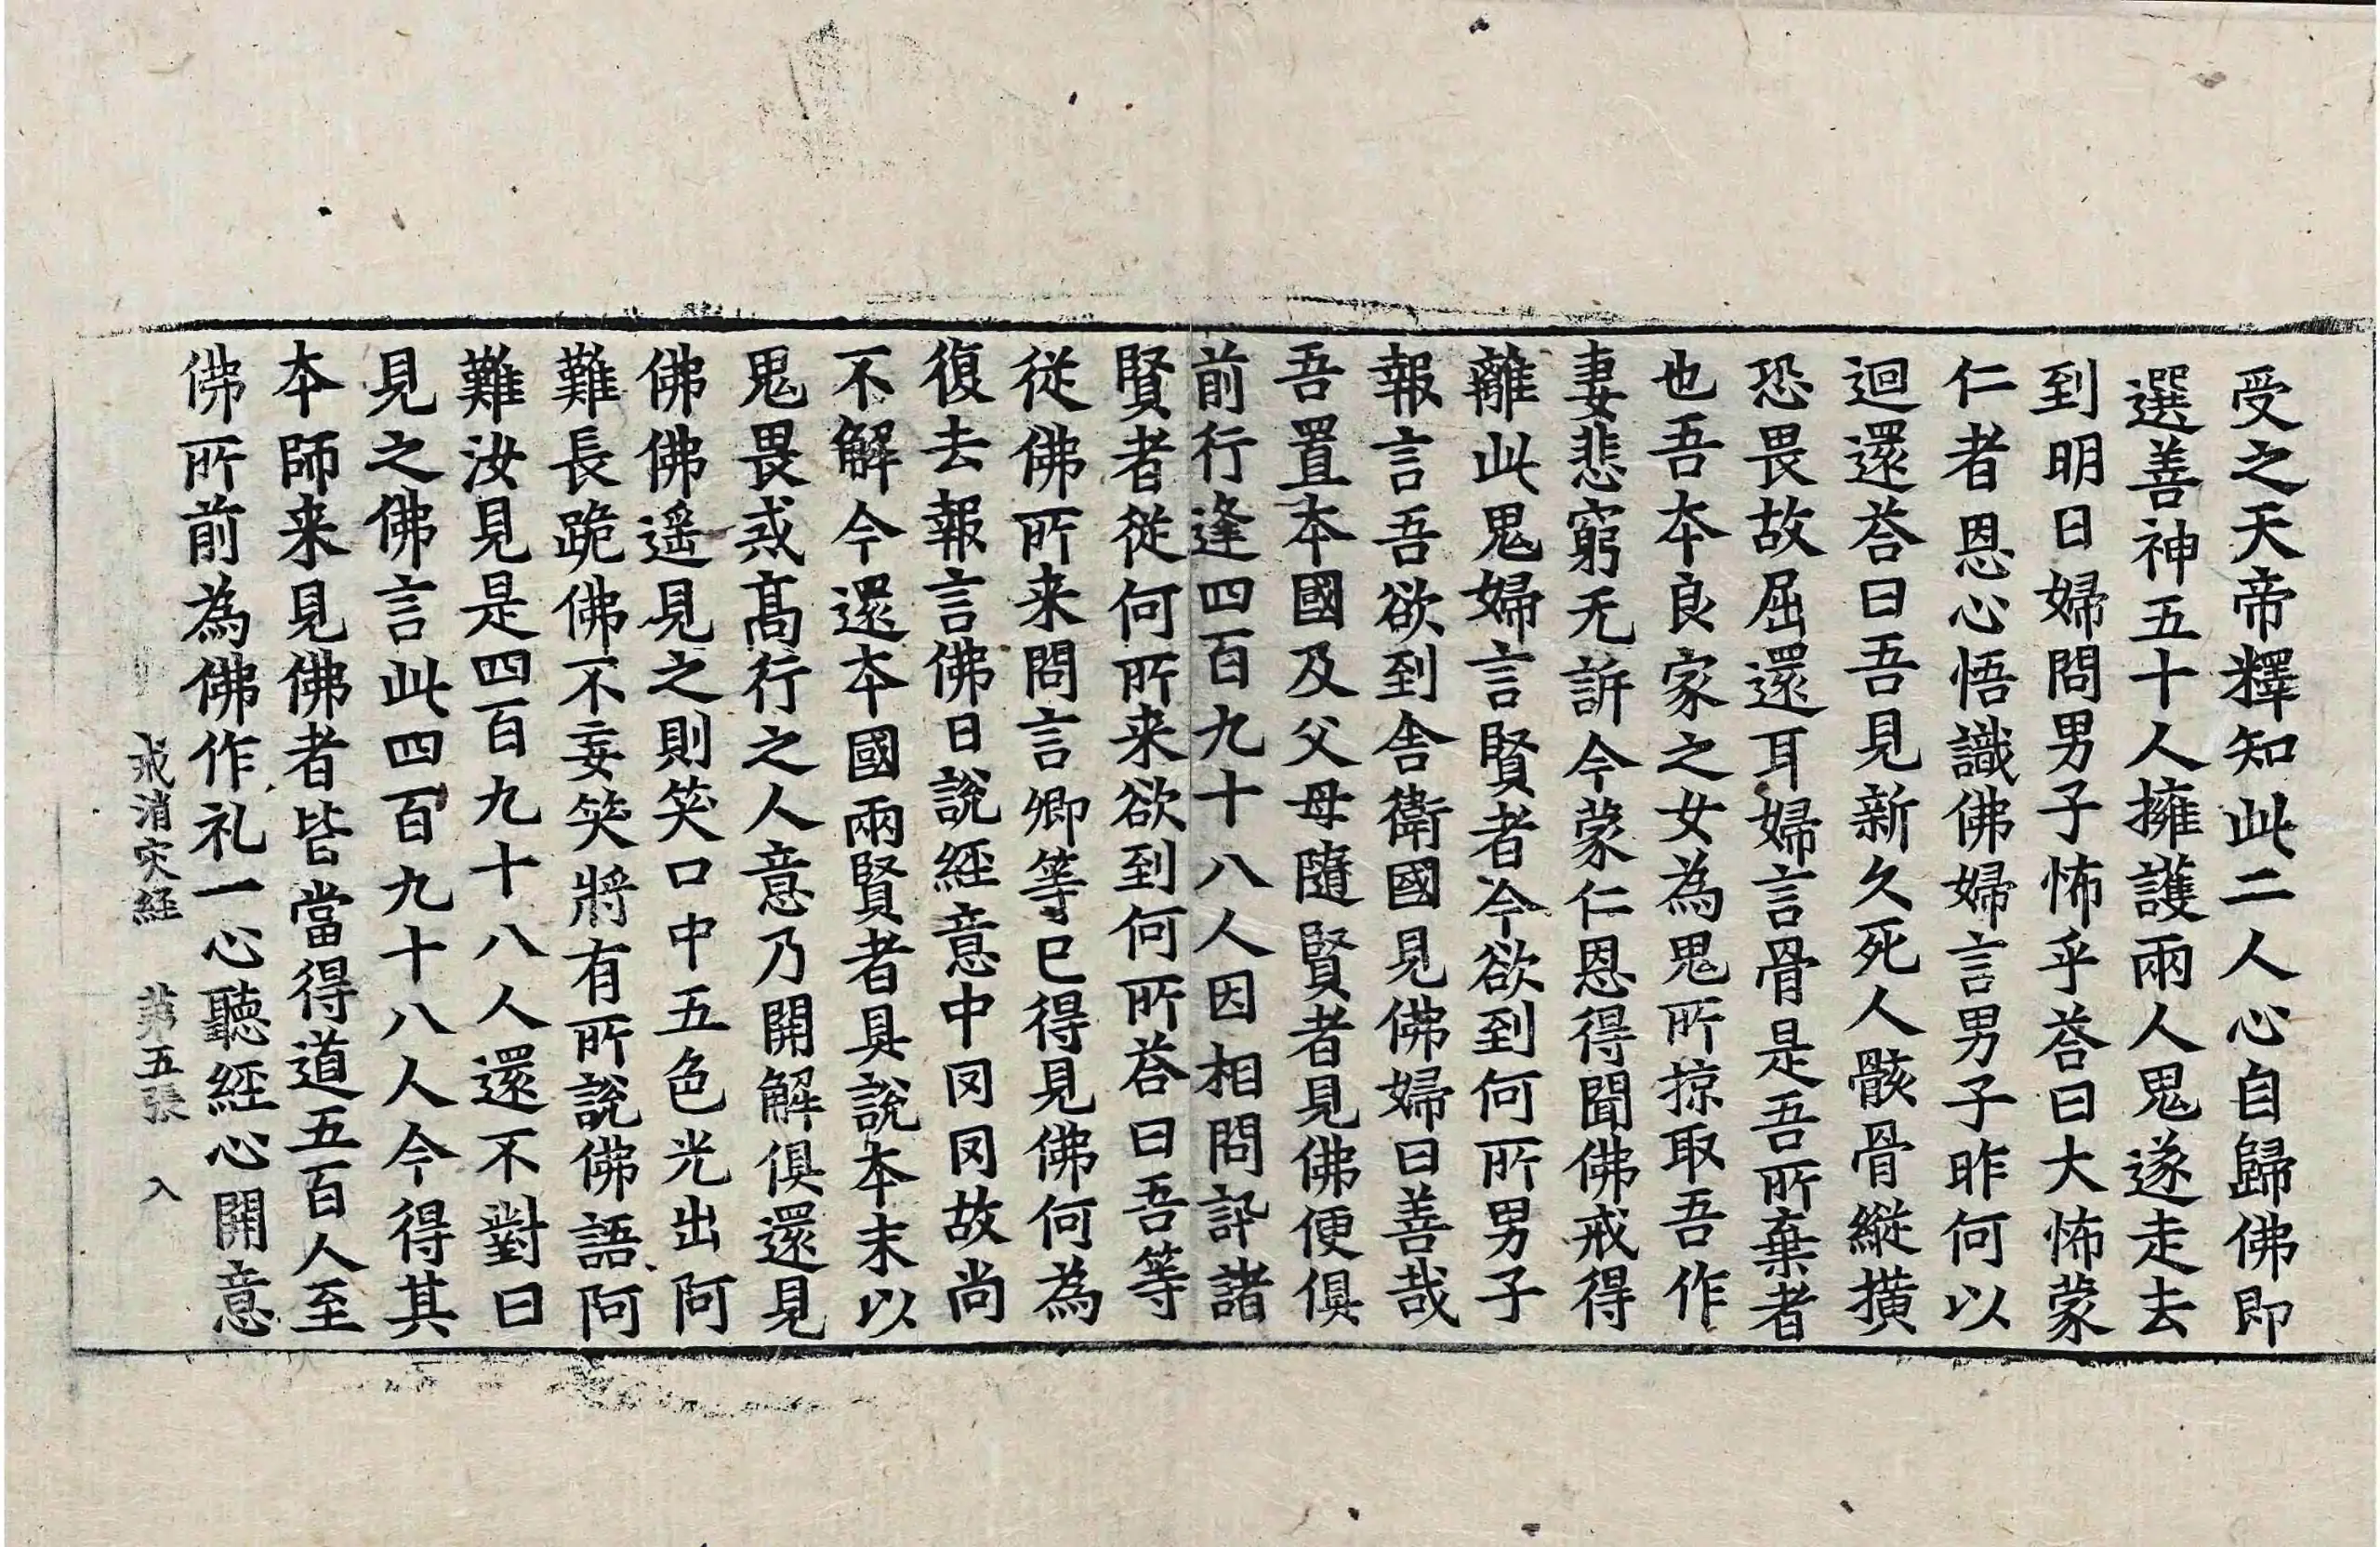 受之天帝釋知此二人心自歸佛即
選善神五十人擁護兩人鬼遂走去
到明日婦問男子怖乎荅曰大怖蒙
仁者恩心悟識佛婦言男子昨何以
迴還荅曰吾見新久死人骸骨縱撗
恐畏故屈還耳婦言骨是吾所棄者
也吾本良家之女為鬼所掠取吾作
妻悲窮无訴今蒙仁恩得聞佛戒得
離此鬼婦言賢者今欲到何所男子
報言吾欲到舍衛國見佛婦曰善哉
吾置本國及父母隨賢者見佛便俱
前行逢四百九十八人因相問訊諸
賢者從何所来欲到何所荅曰吾等
從佛所来問言卿等已得見佛何為
復去報言佛日說經意中罔罔故尚
不解今還本國兩賢者具說本末以
鬼畏戒髙行之人意乃開解俱還見
佛佛遥見之則笑口中五色光出阿
難長跪佛不妄笑將有所說佛語阿
難汝見是四百九十八人還不對曰
見之佛言此四百九十八人今得其
本師来見佛者皆當得道五百人至
佛所前為佛作礼一心聽經心開意
戒消灾経 苐五張 入